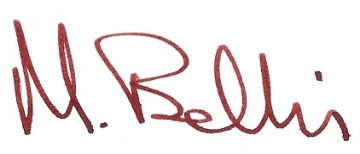 M. Bellis